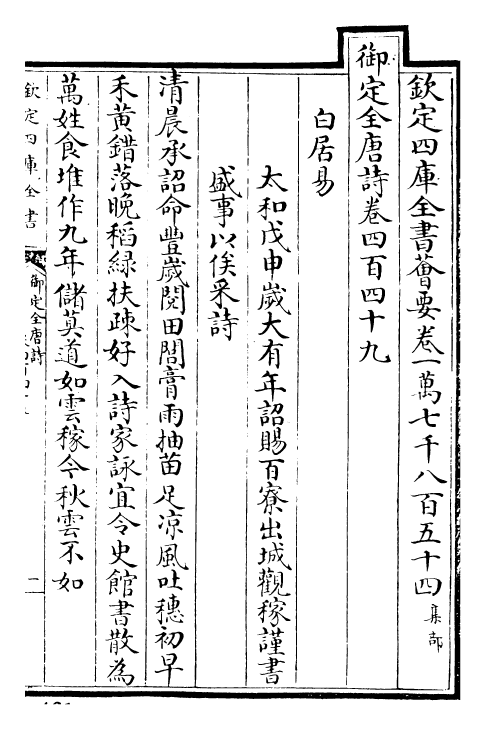 欽定四庫全書薈要卷一萬七千八百五十四集部
御定全唐詩卷四百四十九
白居易
太和戊申歲大有年詔賜百寮出城觀稼謹書
盛事以俟采詩
清晨承詔命豐歲閱田閭膏雨抽苗足涼風吐穗初早
禾黄錯落晩稻緑扶疎好入詩家詠宜令史館書散為
萬姓食堆作九年儲莫道如雲稼今秋雲不如
欽定四庫全書
御定全唐詩